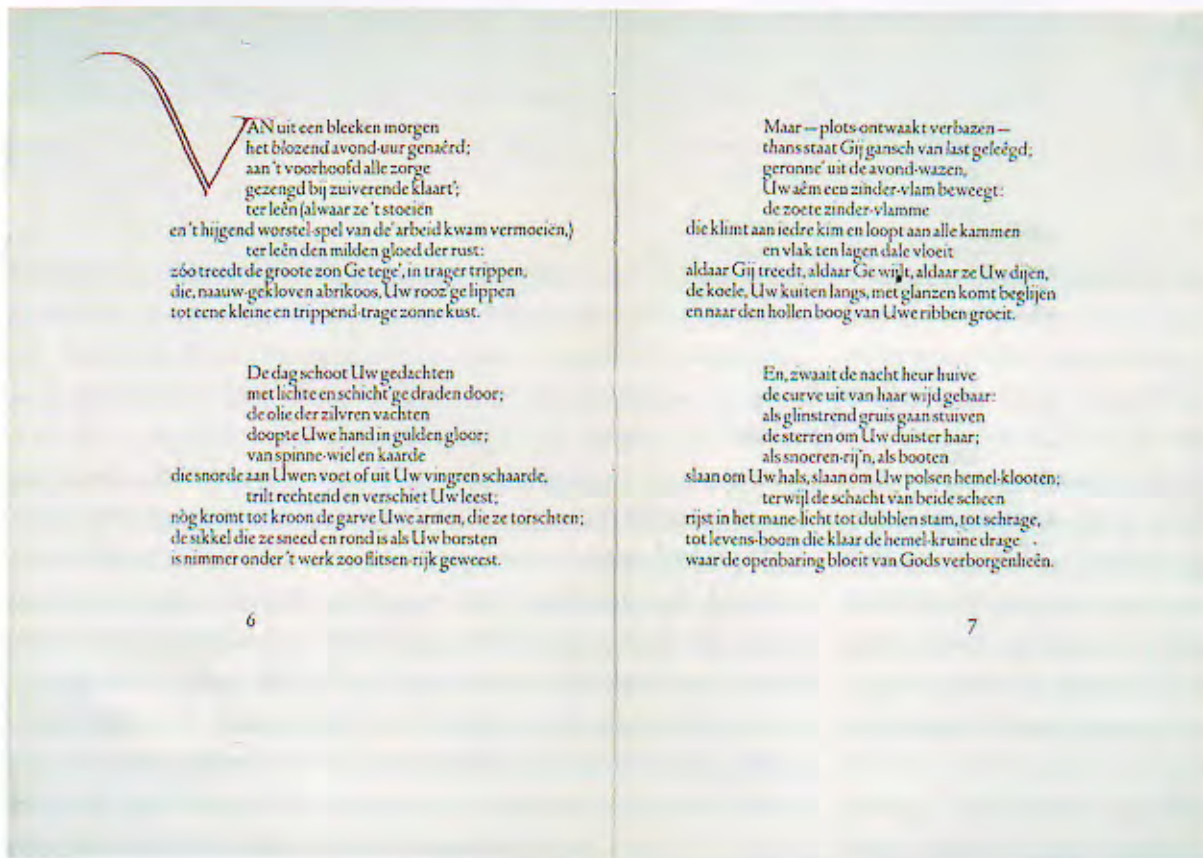 VAN uit een bleeken morgen
het blozend avond-uur genaêrd;
aan 't voorhoofd alle zorge
gezengd bij zuiverende klaart';
ter leên (alwaar ze 't stoeiën
en 't hijgend worstel-spel van de' arbeid kwam vermoeiën,)
ter leên den milden gloed der rust:
zóo treedt de groote zon Ge tege', in trager trippen,
die, nauw-gekloven abrikoos, Uw rooz'ge lippen
tot eene kleine en trippend-trage zonne kust.
De dag schoot Uw gedachten
met lichte en schicht'ge draden door;
de olie der zilvren vachten
doopte Uwe hand in gulden gloor;
van spinne-wiel en kaarde
die snorde aan Uwen voet of uit Uw vingren schaarde,
trilt rechtend en verschiet Uw leest;
nòg kromt tot kroon de garve Uwe armen, die ze torschten;
de sikkel die ze sneed en rond is als Uw borsten
is nimmer onder 't werk zoo flitsen-rijk geweest.
6
Maar — plots ontwaakt verbazen —
thans staat Gij gansch van last geleêgd;
geronne' uit de avond-wazen,
Uw aêm een zinder-vlam beweegt:
de zoete zinder-vlamme
die klimt aan iedre kim en loopt aan alle kammen
en vlak ten lagen dale vloeit
aldaar Gij treedt, aldaar Ge wijlt, aldaar ze Uw dijen,
de koele, Uw kuiten langs, met glanzen komt beglijen
en naar den hollen boog van Uwe ribben groeit.
En, zwaait de nacht heur huive
de curve uit van haar wijd gebaar:
als glinstrend gruis gaan stuiven
de sterren om Uw duister haar;
als snoeren-rij'n, als booten
slaan om Uw hals, slaan om Uw polsen hemel-klooten;
terwijl de schacht van beide scheen
rijst in het mane-licht tot dubblen stam, tot schrage,
tot levens-boom die klaar de hemel-kruine drage
waar de openbaring bloeit van Gods verborgenheên.
7